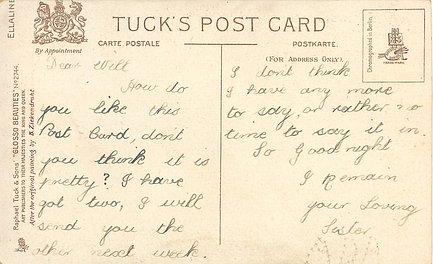 ELLALINE
TUCK'S POST CARD
By Appointment
CARTE POSTALE
POSTKARTE.
(FOR ADDRESS ONLY.)
Chromographed in Berlin.
TRADE MARK
Raphael Tuck & Sons' "GLOSSO BEAUTIES" No 2744.
ART PUBLISHERS TO THEIR MAJESTIES THE KING AND QUEEN.
After the original painting by B. Zickendraht
Dear Will
How do
you like this
Post Card, don't
you think it is
pretty? I have
got two, I will
send you the
other next week.
I dont think
I have any more
to say, or rather no
time to say it in.
So Goodnight
I remain
your Loving
Sister